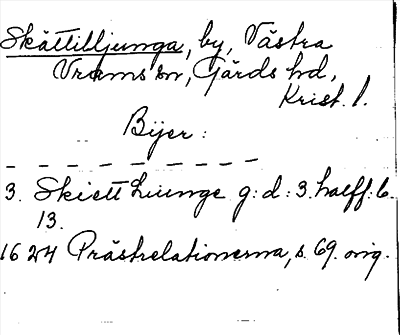 Skättilljunga, by, Västra
Vrams sn, Gärds hd,
Krist. l.
Bijer:
3. Skiett Liunge g: d: 3. halff: 6.
13.
1624 Prästrelationerna, s. 69. orig.